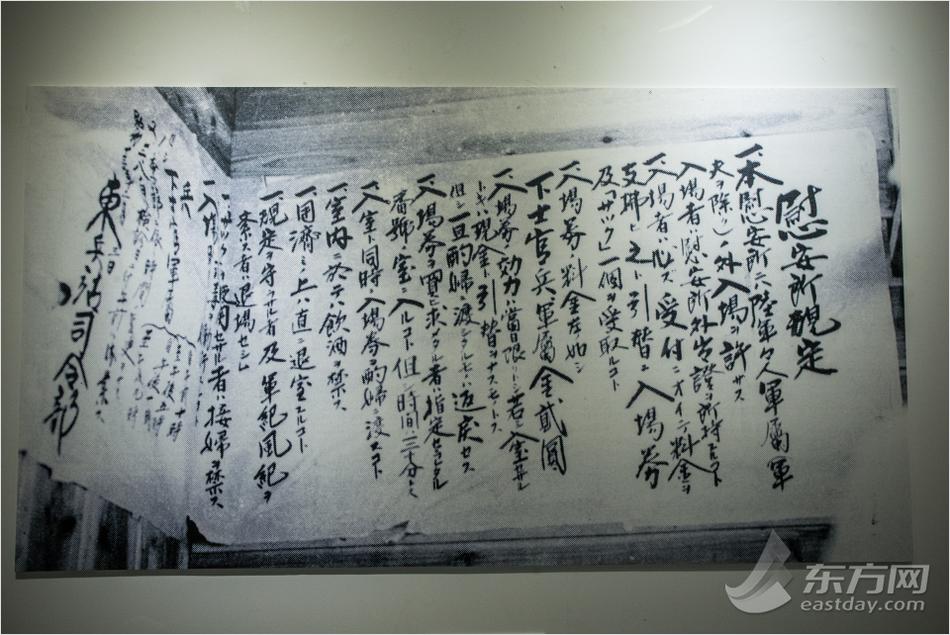 慰安所規定
一、本慰安所ニハ陸軍々人軍属(軍
夫ヲ除ク)ノ外入場ヲ許サス
入場者ハ慰安所外出證ヲ所持スルコト
一、入場者ハ必ズ受付ニオイテ料金ヲ
支拂ヒ之ト引替ニ入場券
及「サック」一個ヲ受取ルコト
一、入場券ノ料金左ノ如シ
下士官兵軍属金貳圓
一、入場券ノ効力ハ當日限リトシ若シ入室セサル
トキハ現金ト引替ヲナスモノトス
但シ一旦酌婦ニ渡シタルモノハ返戻セス
一、入場券ヲ買ヒ求メタル者ハ指定セラレタル
番號ノ室ニ入ルコト但シ時間ハ三十分トス
一、入室ト同時ニ入場券ヲ酌婦ニ渡スコト
一、室内ニ於テハ飲酒ヲ禁ス
一、用濟ミノ上ハ直ニ退室スルコト
一、規定ヲ守ラサル者及軍紀風紀ヲ
紊ス者ハ退場セシム
一、サックヲ使用セサル者ハ接婦ヲ禁ス
一、入場時間
兵
下士官及軍属
東兵站司令部
东方网
eastday.com